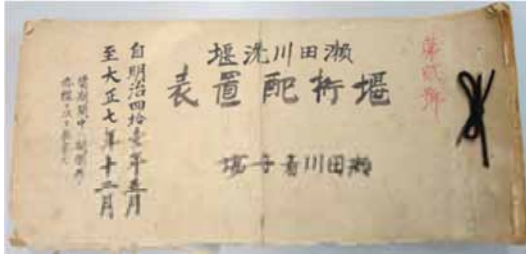 第貳號
瀬田川洗堰
堰桁配置表
瀬田川看守場
自明治四拾壹年五月
至大正七年十二月